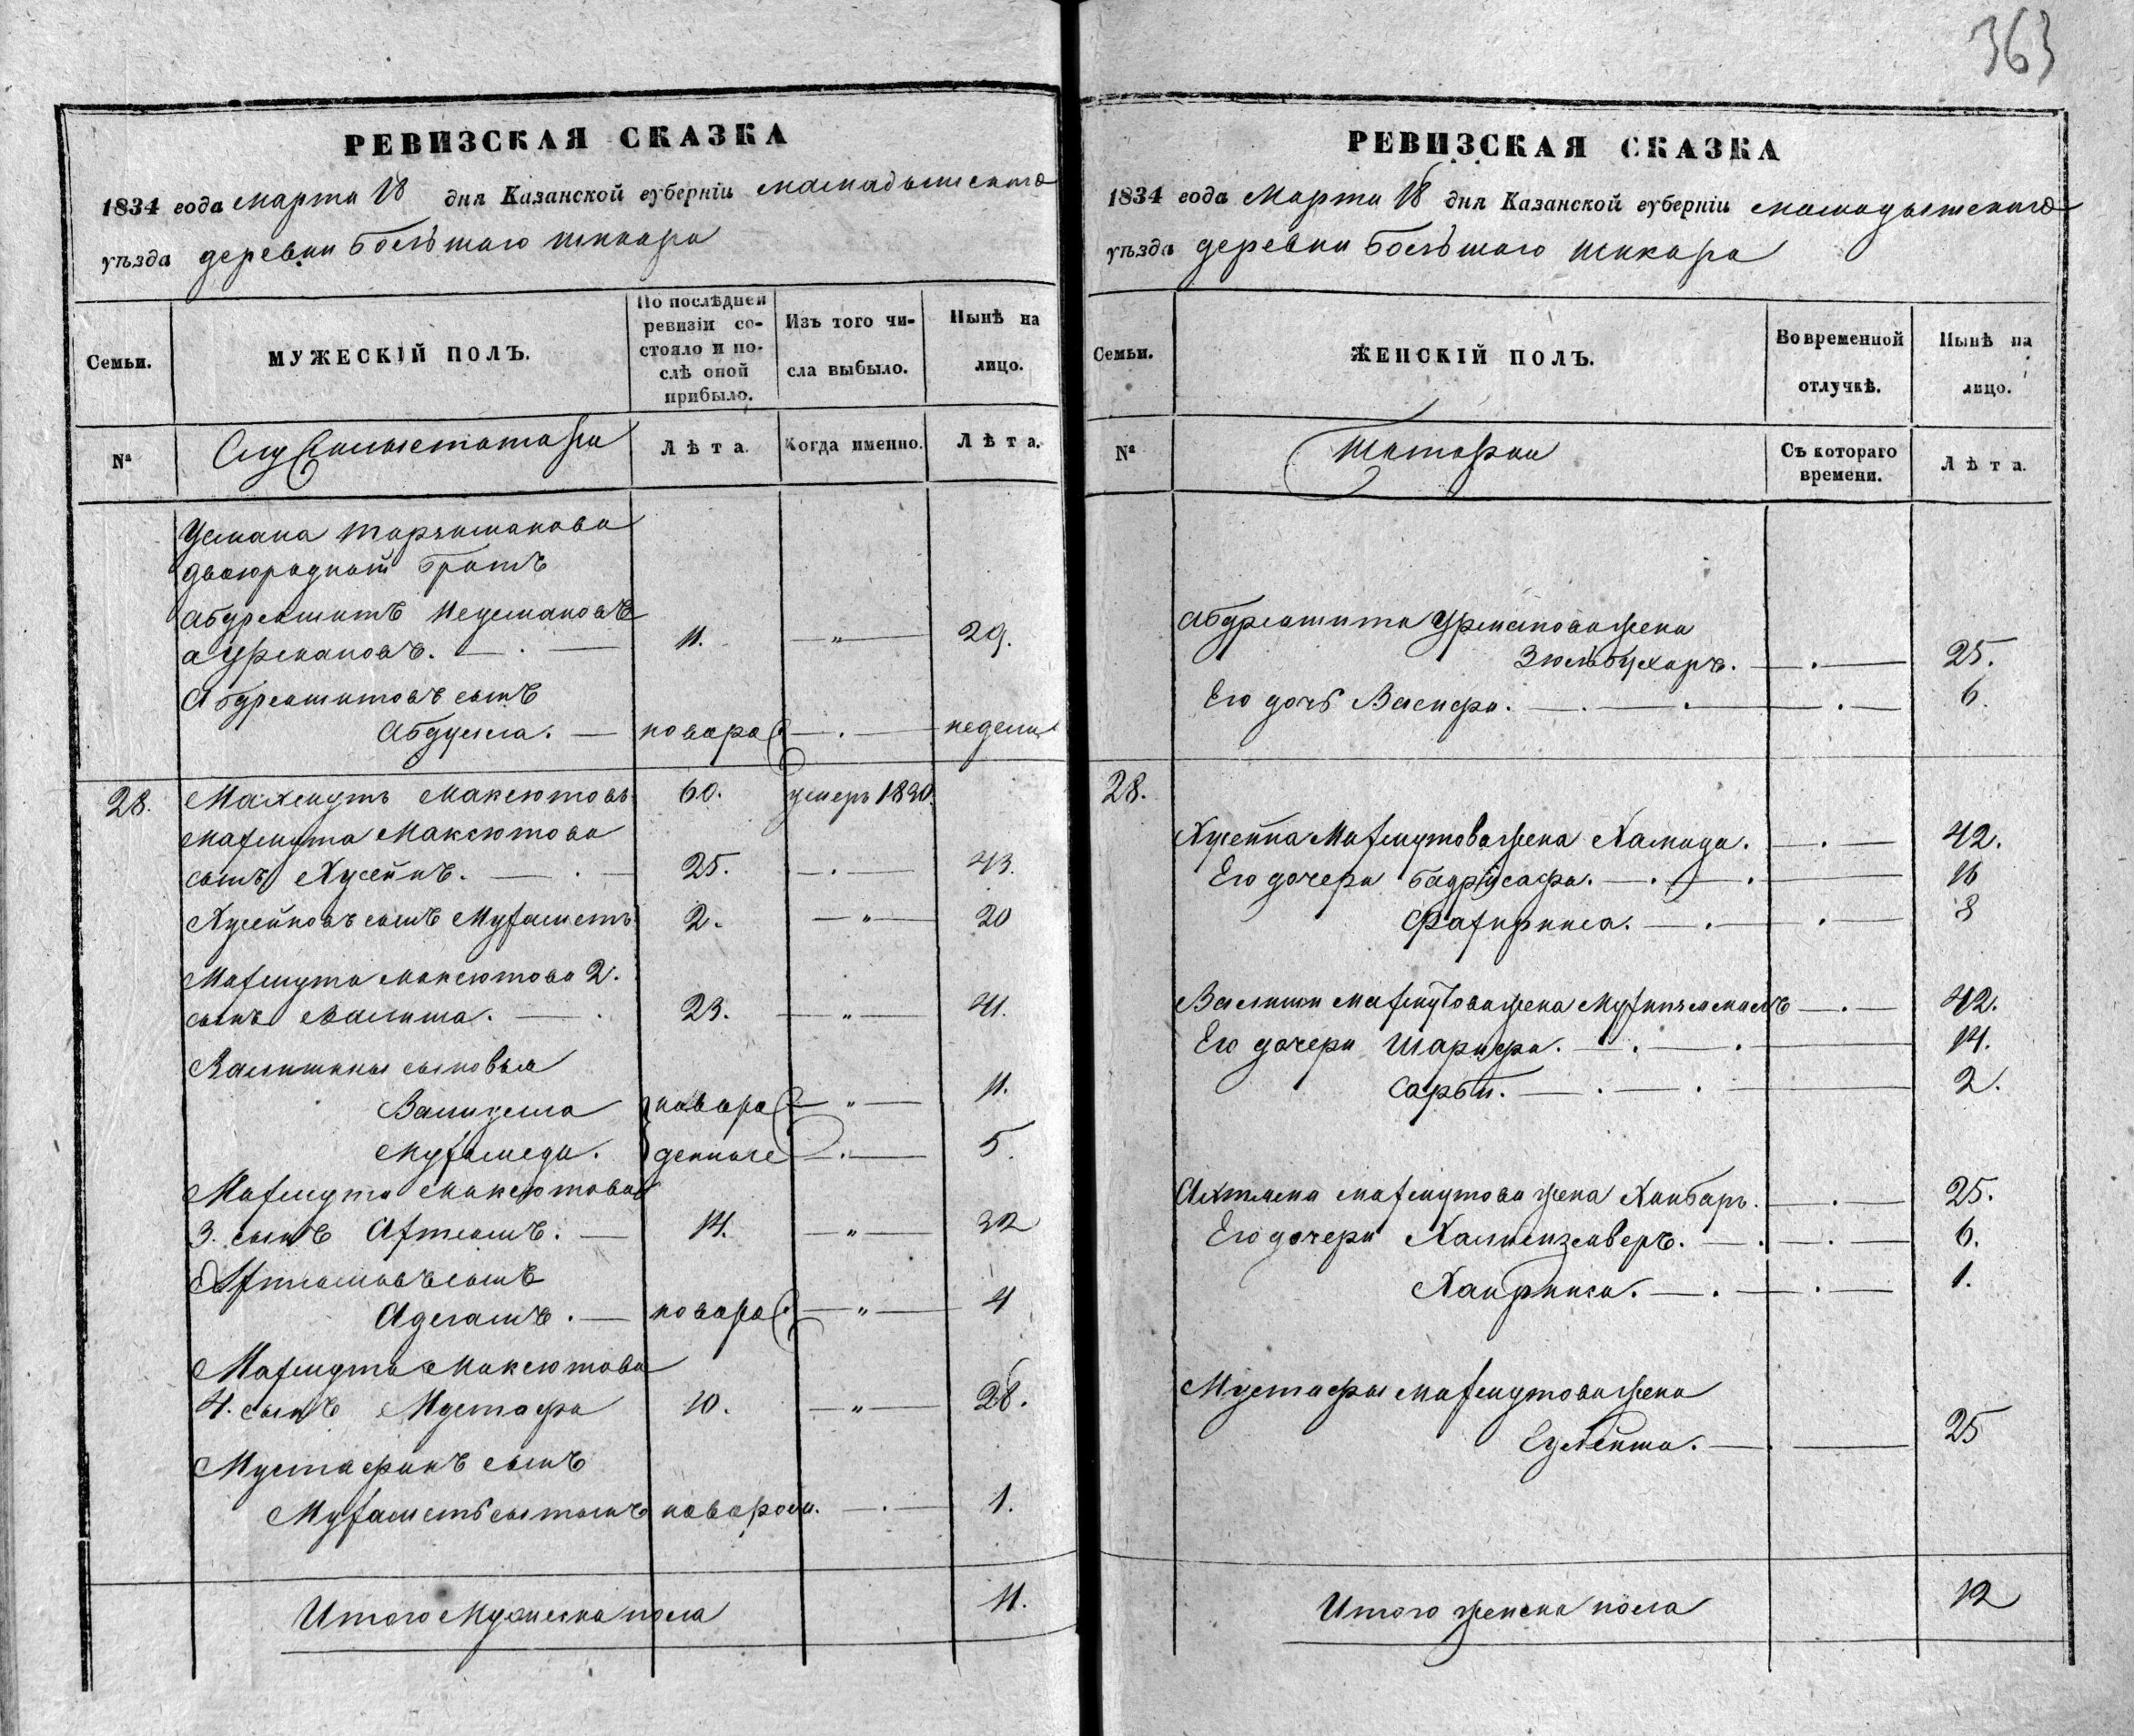 363
РЕВИЗСКАЯ СКАЗКА
1834 года марта 18 дня Казанской губерніи мамадышскаго
уѣзда деревни Большаго шикара
Семьи.
МУЖЕСКІЙ ПОЛЪ.
По послѣдней ревизіи состояло и послѣ оной прибыло.
Изъ того числа выбыло.
Нынѣ на лицо.
№
Служилыетатара
Лѣта.
Когда именно.
Лѣта.
Усмана
двоюродной братъ
абдрешитъ
11. — " — 29.
Абдрешитовъ сынъ
Абдулла. — новоро — . — недели
28. Махмутъ Максютовъ 60. умеръ 1830.
махмута Максютова
сынъ Хусейнъ. — . — 25. — . — 43.
Хусейновъ сынъ Мухаметъ 2. — " — 20
Махмута максютова 2.
сынъ Валиша. — . 23. — " — 41.
Валишины сыновья
Валидулла новоро — " — 11.
Мухамеди. денные — . — 5.
Махмута максютова
3. сынъ Ахтямъ. — 14. — " — 32
Ахтямовъ сынъ
Адегамъ. — новоро — " — 4
Махмута Максютова
4. сынъ Мустафа 10. — " — 28.
Мустафинъ сынъ
новорож. — . — 1.
Итого Мужеска пола 11.
РЕВИЗСКАЯ СКАЗКА
1834 года Марта 18 дня Казанской губерніи мамадышскаго
уѣзда деревни Большаго шикара
Семьи.
ЖЕНСКІЙ ПОЛЪ.
Во временной отлучкѣ.
Нынѣ на лицо.
№
Татарки
Съ котораго времени.
Лѣта.
абдрешита Урманова жена
Зюльбухаръ. — . — 25.
Его дочь Васифа. — . — . — . — 6.
28.
Хусейна Махмутова жена Хамида. — . — 42.
Его дочери Бадрисафа. — . — . — 16
Фахриниса. — . — . — 8
Валиши махмутова жена — . — 42.
Его дочери Шарифа. — . — . — 14.
Сарби. — . — . — 2.
Ахтяма махмутова жена Ханбаръ. — . — 25.
Его дочери — . — . — 6.
Хаирниса. — . — . — 1.
Мустафы махмутова жена
— . — 25
Итого женска пола 12